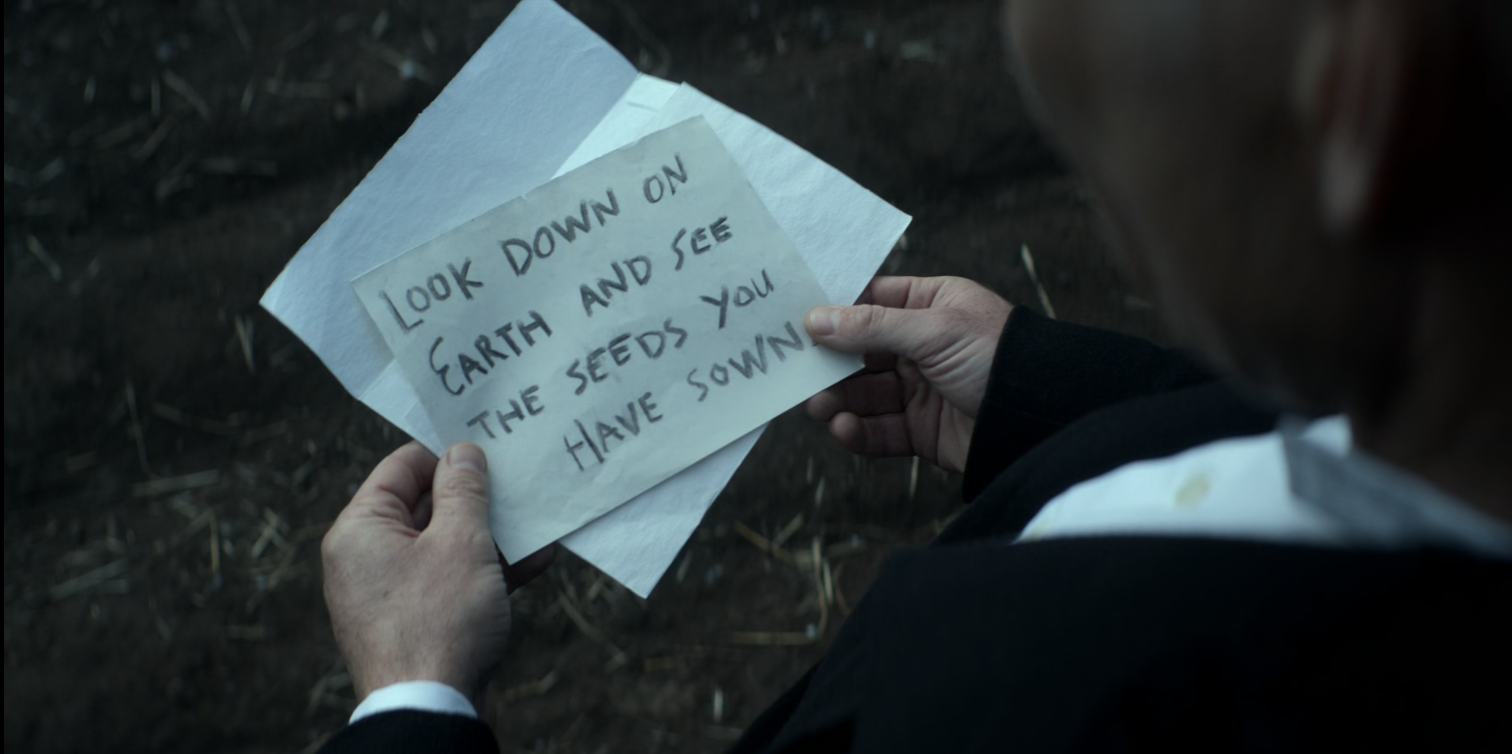 LOOK DOWN ON
EARTH AND SEE
THE SEEDS YOU
HAVE SOWN